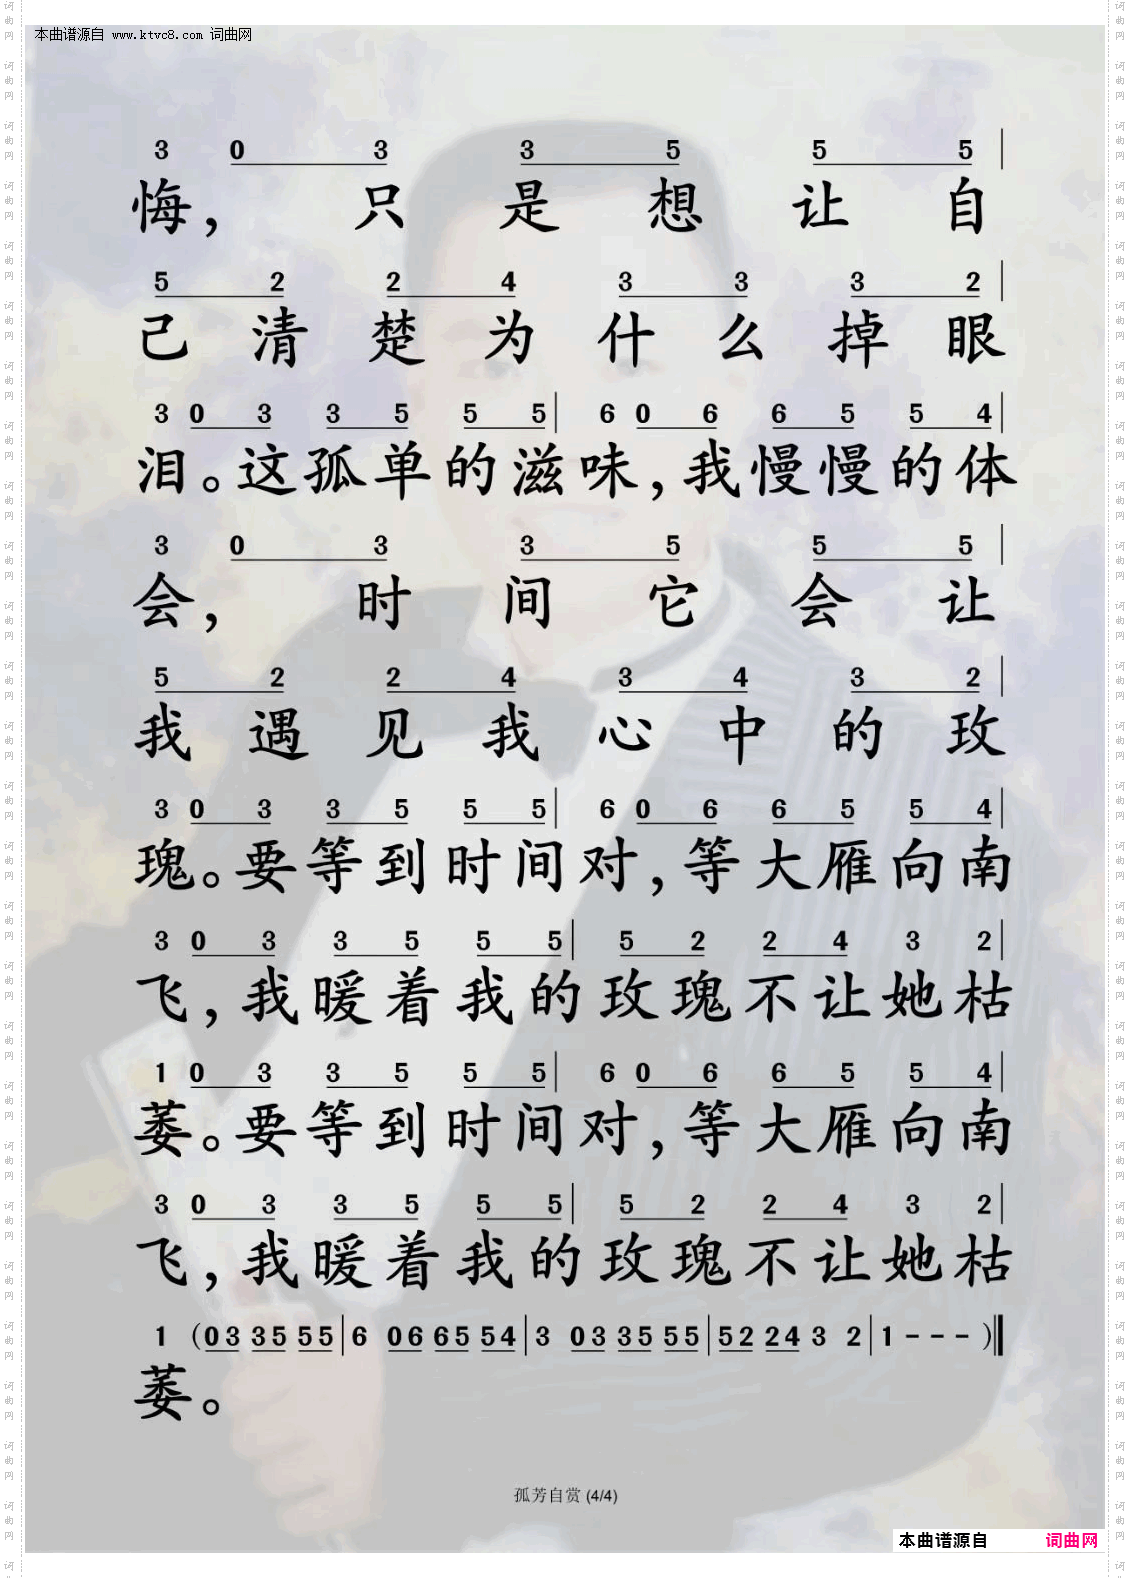 本曲谱源自 www.ktvc8.com 词曲网
3 0 3 3 5 5 5 |
悔， 只 是 想 让 自
5 2 2 4 3 3 3 2 |
己 清 楚 为 什 么 掉 眼
3 0 3 3 5 5 5 | 6 0 6 6 5 5 4 |
泪。这孤单的滋味，我慢慢的体
3 0 3 3 5 5 5 |
会， 时 间 它 会 让
5 2 2 4 3 4 3 2 |
我 遇 见 我 心 中 的 玫
3 0 3 3 5 5 5 | 6 0 6 6 5 5 4 |
瑰。要等到时间对，等大雁向南
3 0 3 3 5 5 5 | 5 2 2 4 3 2 |
飞，我暖着我的玫瑰不让她枯
1 0 3 3 5 5 5 | 6 0 6 6 5 5 4 |
萎。要等到时间对，等大雁向南
3 0 3 3 5 5 5 | 5 2 2 4 3 2 |
飞，我暖着我的玫瑰不让她枯
1 (03 35 55 | 6 06 65 54 | 3 03 35 55 | 52 24 3 2 | 1 - - - )‖
萎。
孤芳自赏 (4/4)
本曲谱源自 词曲网